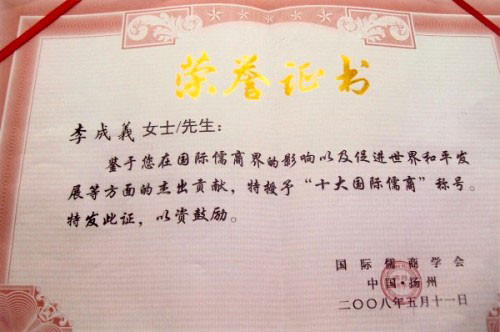 荣誉证书
李成義 女士/先生：
鉴于您在国际儒商界的影响以及促进世界和平发
展等方面的杰出贡献，特授予“十大国际儒商”称号。
特发此证，以资鼓励。
国际儒商学会
中国·扬州
二〇〇八年五月十一日